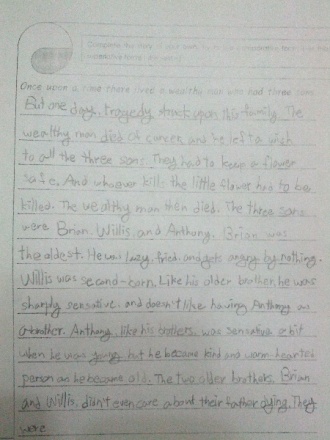 Complete the story in your own
Once upon a time there lived a wealthy man who had three sons.
But one day, tragedy struck upon this family. The
wealthy man died of cancer, and he left a wish
to all the three sons. They had to keep a flower
safe. And whoever kills the little flower has to be
killed. The wealthy man then died. The three sons
were Brian, Willis, and Anthony. Brian was
the oldest. He was lazy, and gets angry by nothing.
Willis was second-born. Like his older brother, he was
sharply sensitive, and doesn't like having Anthony as
a brother. Anthony, like his brothers, was sensitive a bit
when he was young, but he became kind and warm-hearted
person as he became old. The two older brothers, Brian
and Willis, didn't even care about their father dying. They
were